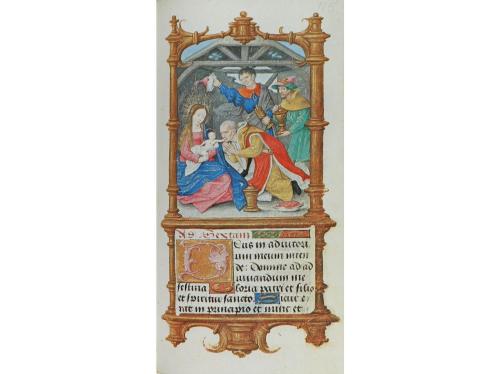 Ad Sextam
Deus in adiutori
um meum inten
de: Domine ad ad
iuuandum me
festina Gloria patri et filio
et spiritui sancto Sicut e
rat in principio et nunc et